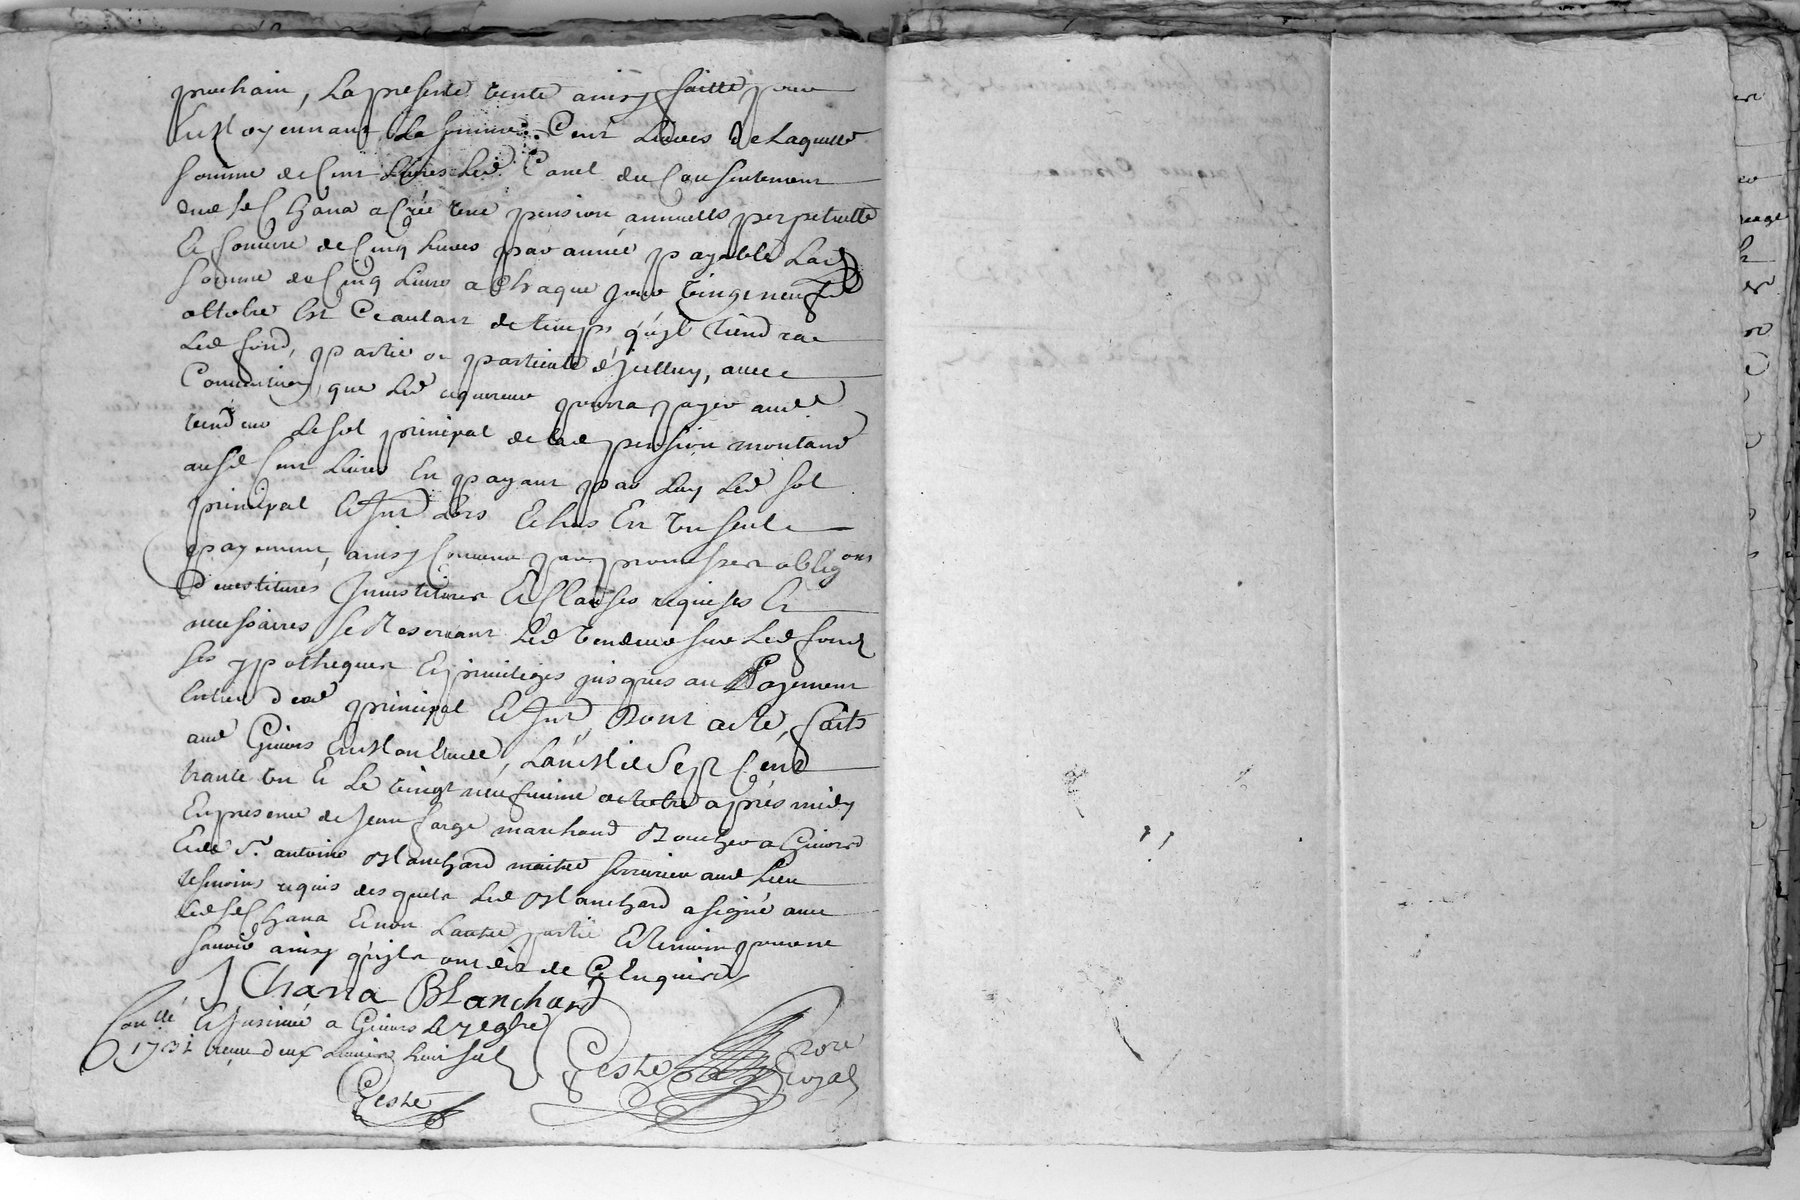 prochain, La presente vente ainsy faitte pour
Et Moyennant La somme: Cent Livres de Laquelle
somme de Cent Livres Led Canel du Consentement
dud sr Chana a Créé une pension annuelle perpetuelle
Et fonciere de Cinq Livres par année payable Lad
somme de Cinq Livres a Chaque jour vingt neuf
octobre Et Ce autant de temps qu'il tiendra
Led fond, partie ou particule d'jcelluy, avec
Convention que Led acquereur pourra payer aud
vendeur Le sol principal de lad pension montant
ausd Cent Livres En payant par Luy Led sol
principal Et jnt Lors Echus En un seul
payement, ainsy Convenu par promesses obligons
devestitures Jnvestitures Et Clauses requises Et
necessaires se Reservant Led vendeur sur Led fond
ses ypotheques Et privileges jusques au Payement
Entier dud principal Et jnt, Dont acte, faits
aud Givors En Mon Etude, Lan Mil Sept Cent
trante un Et Le vingt neufvieme octobre après midy
En presence de Jean farge marchand Boucher a Givors
Et de Sr. antoine Blanchard maitre serrurier aud Lieu
tesmoins requis desquels Led Blanchard a signé avec
Led sr Chana Et non Lautre partie Et temoin pour ne
sçavoir ainsy qu'ils ont dit de Ce Enquis
J Chana Blanchard
Conllé Et jnsinué a Givors Le 7e 9bre
1731 reçeu deux Livres huit sol
Geste Nore
Royal
Geste